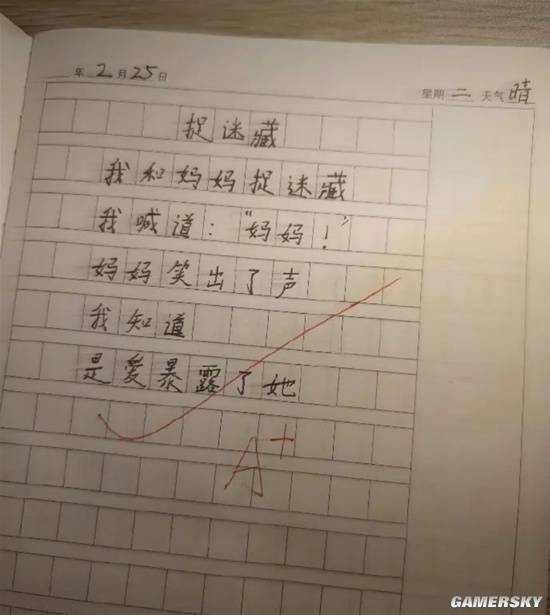 年2月25日 星期二 天气晴
捉迷藏
我和妈妈捉迷藏
我喊道："妈妈！"
妈妈笑出了声
我知道
是爱暴露了她
A+
GAMERSKY